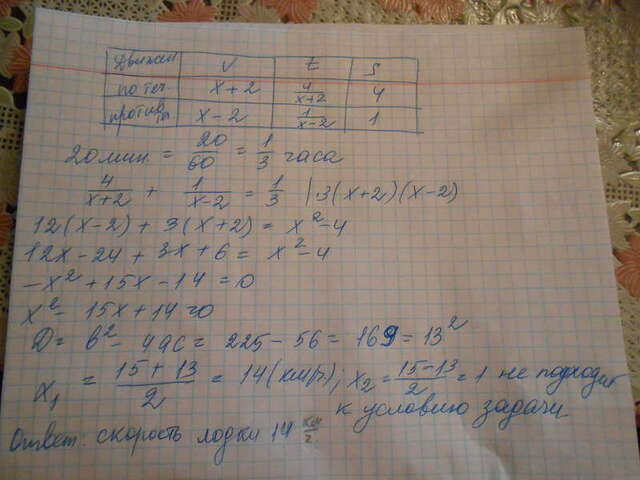 Движен V t S
по теч. x+2 4/(x+2) 4
против теч x-2 1/(x-2) 1
20 мин = 20/60 = 1/3 часа
4/(x+2) + 1/(x-2) = 1/3 | 3(x+2)(x-2)
12(x-2) + 3(x+2) = x²-4
12x-24 + 3x+6 = x²-4
-x²+15x-14=0
x²-15x+14=0
D= b²-4ac = 225-56 = 169 = 13²
x₁ = (15+13)/2 = 14(км/ч); x₂ = (15-13)/2 = 1 не подходит
к условию задачи
Ответ: скорость лодки 14 км/ч